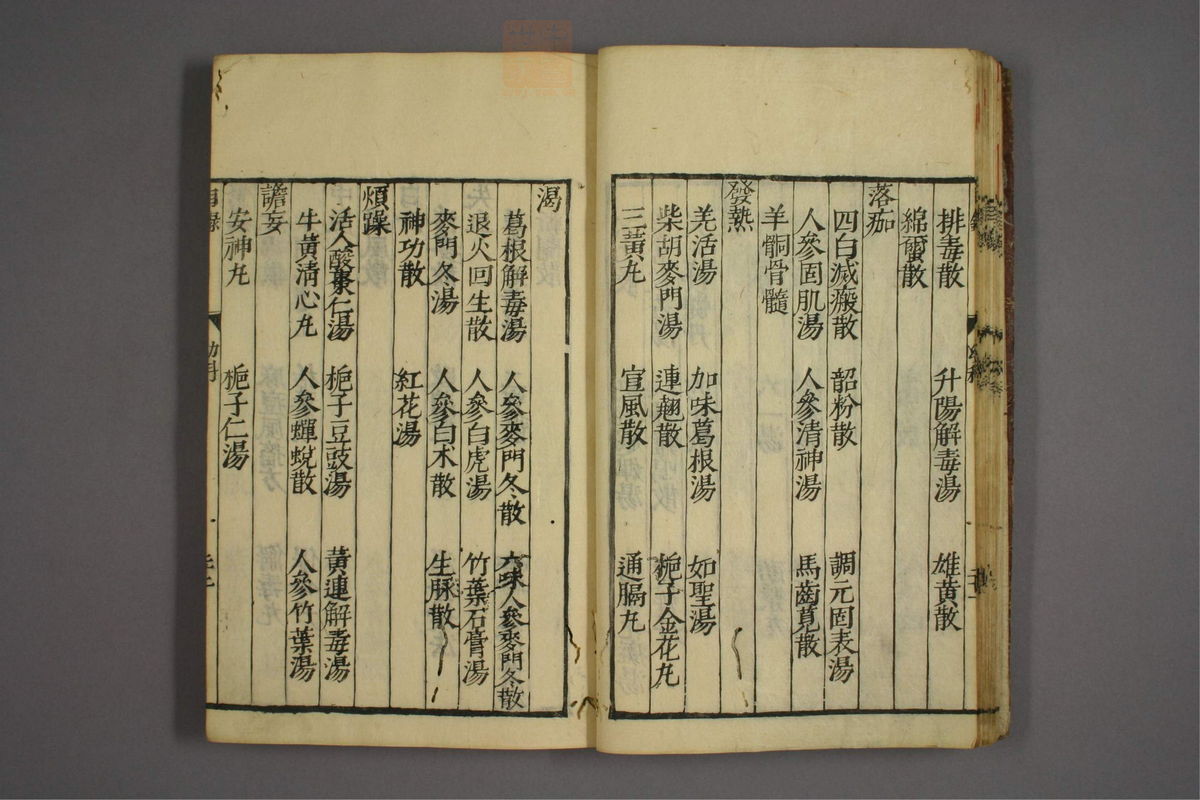 排毒散 升陽解毒湯 雄黄散
綿蠒散
落痂
四白滅瘢散 韶粉散 調元固表湯
人參固肌湯 人參清神湯 馬齒莧散
羊䯒骨髓
發熱
羌活湯 加味葛根湯 如聖湯
柴胡麥門湯 連翹散 梔子金花丸
三黄丸 宣風散 通膈丸
渴
葛根解毒湯 人參麥門冬散 六味人參麥門冬散
退火回生散 人參白虎湯 竹葉石膏湯
麥門冬湯 人參白术散 生脲散
神功散 紅花湯
煩躁
活人酸棗仁湯 梔子豆豉湯 黃連解毒湯
牛黃清心丸 人參蟬蛻散 人參竹葉湯
譫妄
安神丸 梔子仁湯